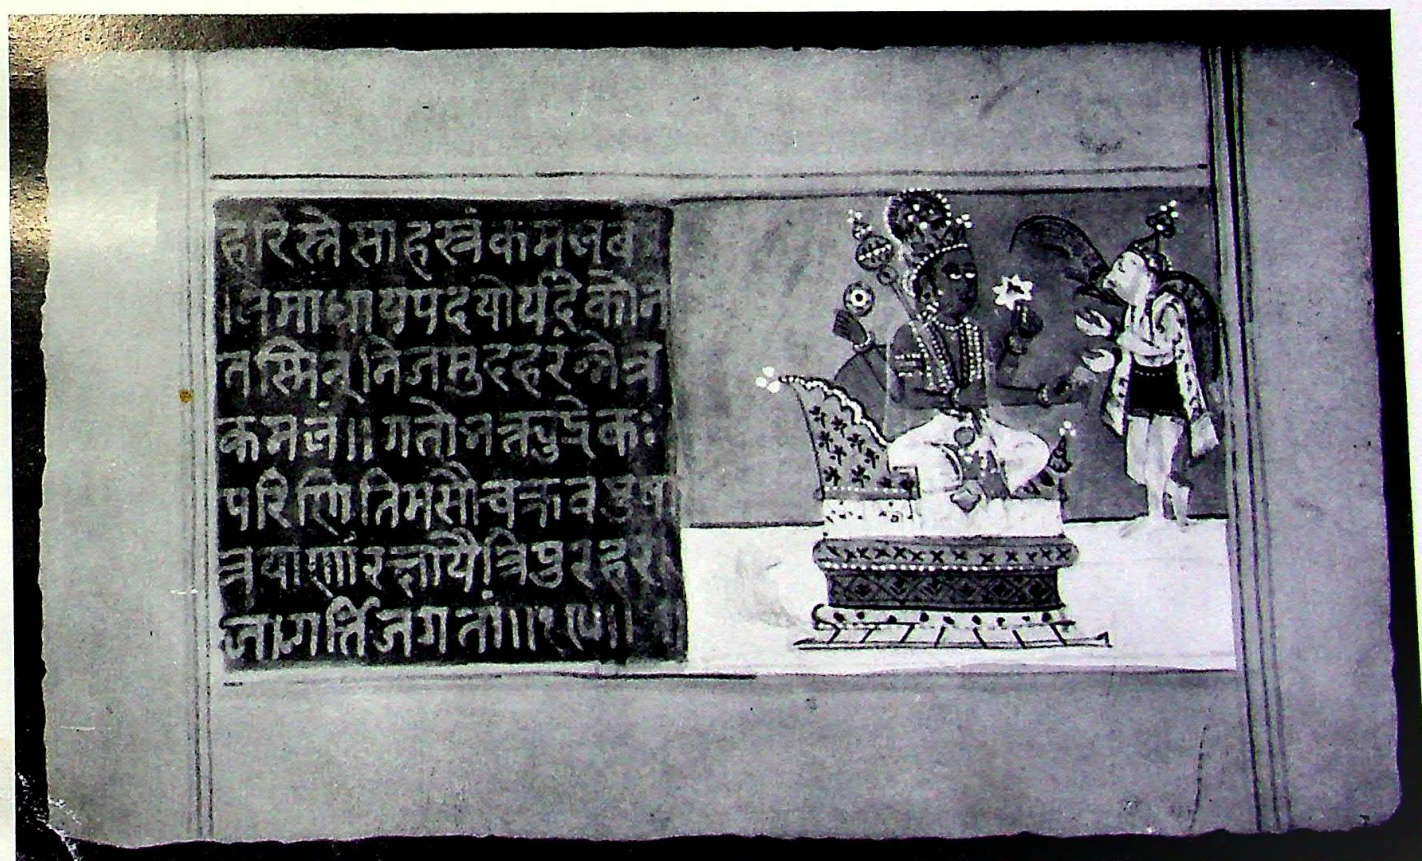 हरिस्ते साहस्त्रं कमलब
लिमाधाय पदयोर्यदेकोने
तस्मिन् निजमुदहरन्नेत्र
कमलं॥ गतो भक्त्युद्रेकः
परिणितिमसौ चक्रवपुषा
त्रयाणां रक्षायै त्रिपुरहर
जागर्ति जगतां॥१९॥